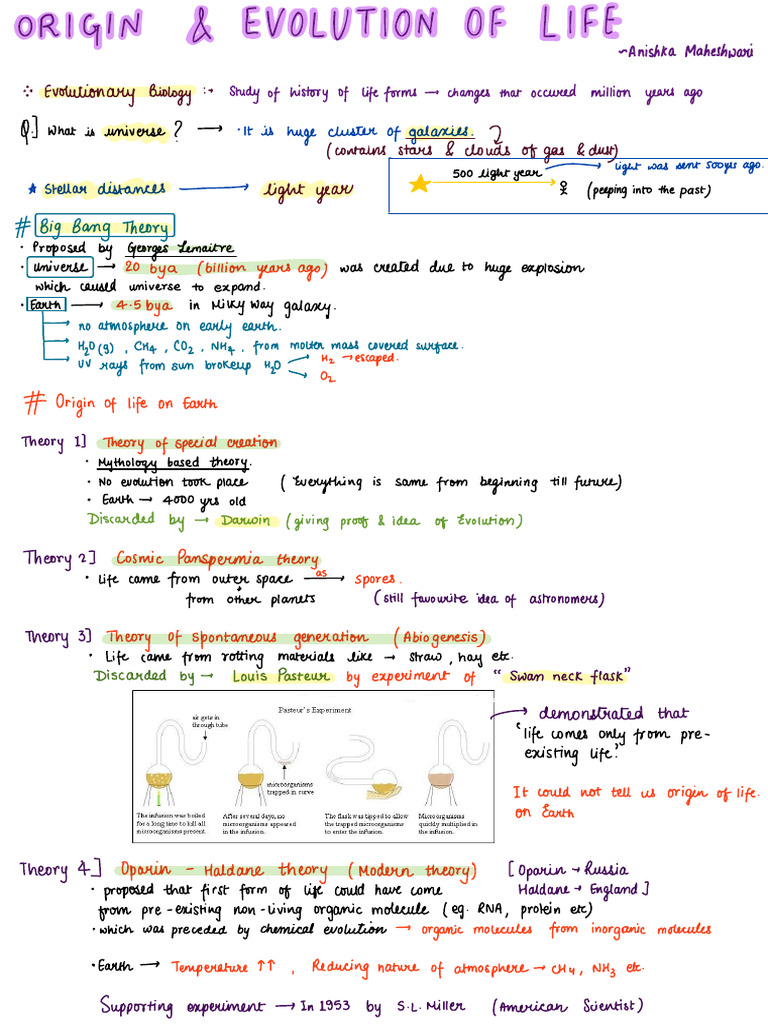 ORIGIN & EVOLUTION OF LIFE
~Anishka Maheshwari
Evolutionary Biology :- Study of history of life forms → changes that occured million years ago
Q.] What is universe? → · It is huge cluster of galaxies.
(contains stars & clouds of gas & dust)
★ Stellar distances → light year
500 light year → light was sent 500 yrs ago.
(peeping into the past)
# Big Bang Theory
· Proposed by Georges Lemaitre
· universe → 20 bya (billion years ago) was created due to huge explosion
which caused universe to expand.
· Earth → 4.5 bya in Milky Way galaxy.
→ no atmosphere on early earth.
→ H₂O(g), CH₄, CO₂, NH₄, from molten mass covered surface.
→ UV rays from sun brokeup H₂O → H₂ → escaped.
→ O₂
# Origin of life on Earth
Theory 1] Theory of special creation
· Mythology based theory.
· No evolution took place (Everything is same from beginning till future)
· Earth → 4000 yrs old
Discarded by → Darwin (giving proof & idea of Evolution)
Theory 2] Cosmic Panspermia theory
· Life came from outer space as → spores.
from other planets (still favourite idea of astronomers)
Theory 3] Theory of spontaneous generation (Abiogenesis)
· Life came from rotting materials like → straw, hay etc.
Discarded by → Louis Pasteur by experiment of "Swan neck flask"
Pasteur's Experiment
air gets in
through tube
microorganisms
trapped in curve
The infusion was boiled
for a long time to kill all
microorganisms present.
After several days, no
microorganisms appeared
in the infusion.
The flask was tipped to allow
the trapped microorganisms
to enter the infusion.
Microorganisms
quickly multiplied in
the infusion.
→ demonstrated that
'life comes only from pre-
existing life.'
It could not tell us origin of life
on Earth
Theory 4] Oparin - Haldane theory (Modern theory) [Oparin → Russia
Haldane → England]
· proposed that first form of life could have come
from pre-existing non-living organic molecule (eg. RNA, protein etc)
· which was preceded by chemical evolution → organic molecules from inorganic molecules
· Earth → Temperature ↑↑, Reducing nature of atmosphere → CH₄, NH₃ etc.
Supporting experiment → In 1953 by S.L. Miller (American Scientist)